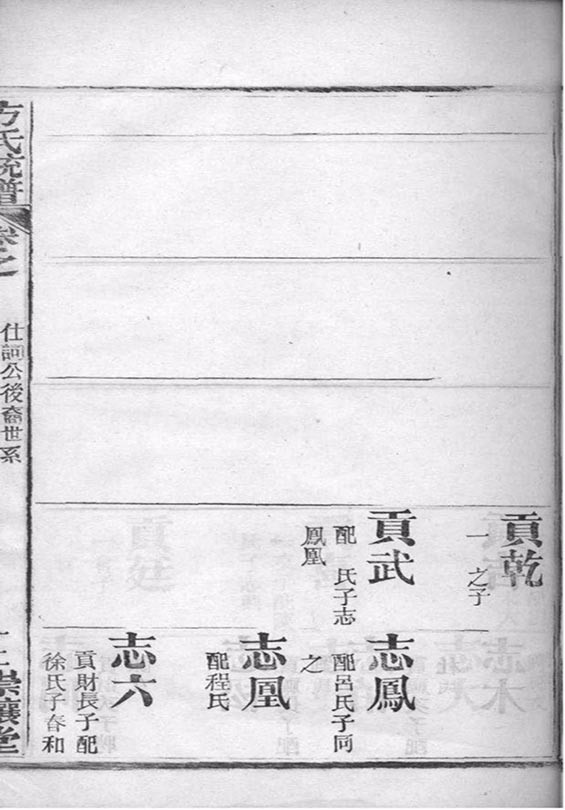 貢乾
一 之子
貢武
配 氏子志
鳳凰
志鳳
配呂氏子同
之
志凰
配程氏
志六
貢財長子配
徐氏子春和
方氏統譜
卷之
仕訶公後裔世系
崇讓堂